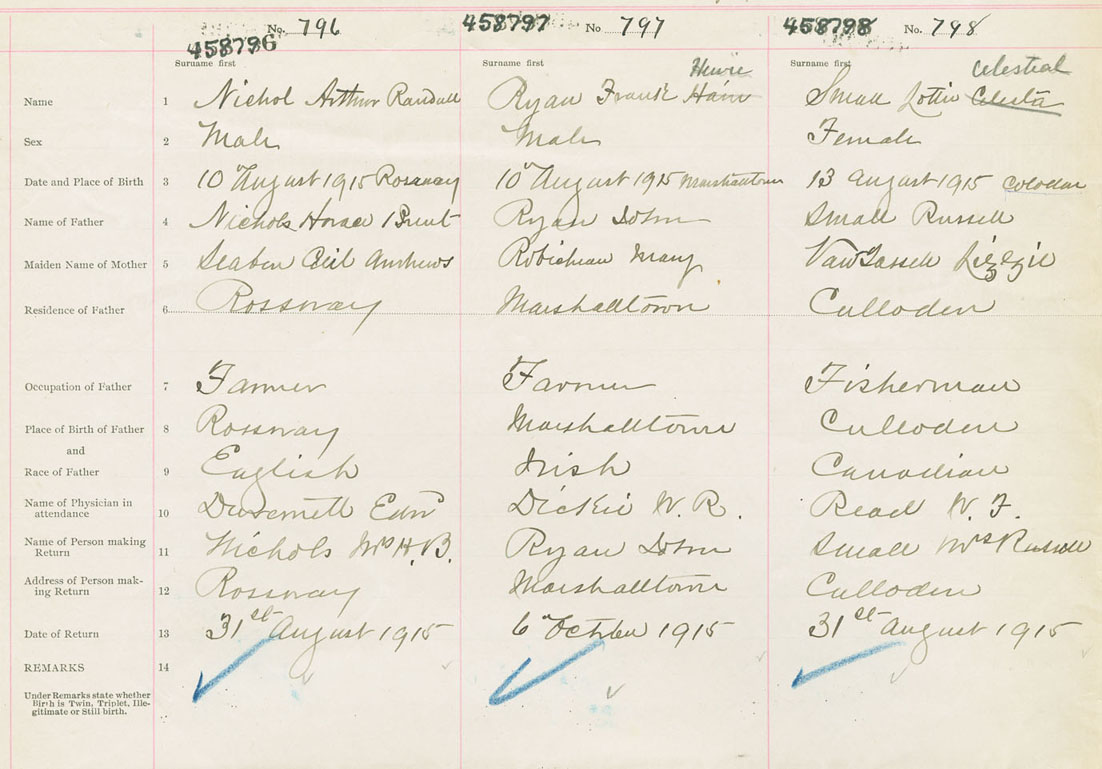 458796 No. 796 458797 No 797 458798 No. 798
Surname first Surname first Surname first
Henri Celestial
Name 1 Nichol Arthur Randall Ryan Frank Small Lottie Celesta
Sex 2 Male Male Female
Date and Place of Birth 3 10" August 1915 Rossway 10" August 1915 Marshalltown 13 August 1915 Coloden
Name of Father 4 Nichols Horace Brent Ryan John Small Russell
Maiden Name of Mother 5 Andrews Robicheau Mary VanTassell Lizzie
Residence of Father 6 Rossway Marshalltown Culloden
Occupation of Father 7 Farmer Farmer Fisherman
Place of Birth of Father 8 Rossway Marshalltown Culloden
and
Race of Father 9 English Irish Canadian
Name of Physician in
attendance 10 Edw Dickie W. R. Read W. F.
Name of Person making
Return 11 Nichols Mrs H. B. Ryan John Small Mrs Russell
Address of Person mak-
ing Return 12 Rossway Marshalltown Culloden
Date of Return 13 31st August 1915 6" October 1915 31st August 1915
REMARKS 14
Under Remarks state whether
Birth is Twin, Triplet, Ille-
gitimate or Still birth.